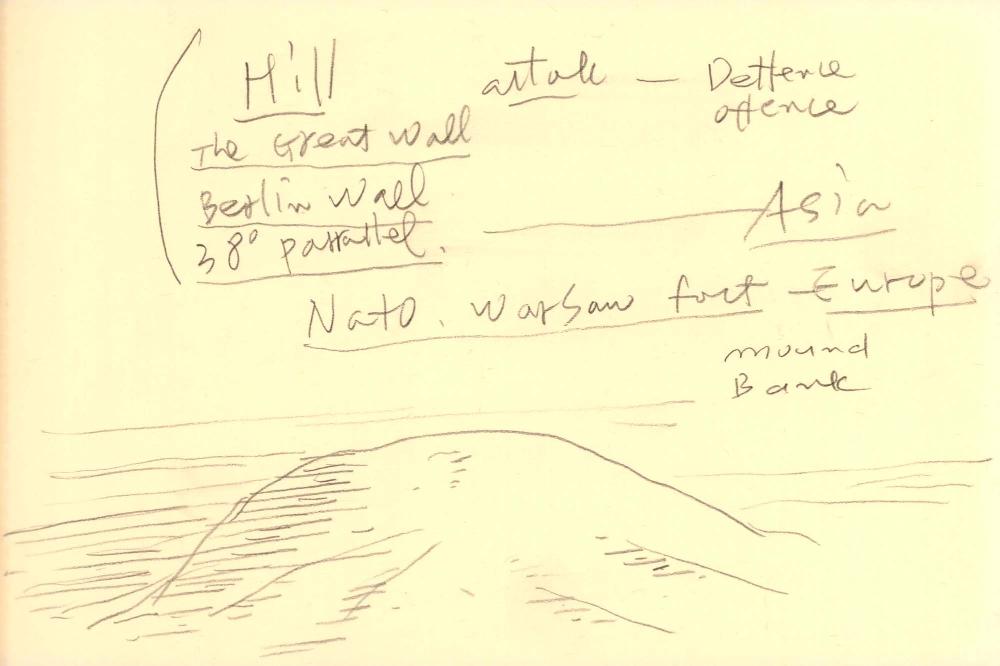 Hill attak — Deffence
offence
The Great Wall
Berlin Wall
38° parallel. — Asia
Nato. Warsaw fact — Europe
mound
Bank